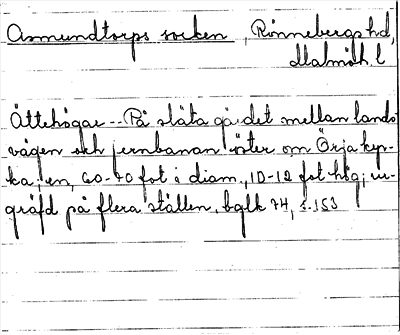 Asmundtorps socken, Rönnebergs hd,
Malmöh. l
Ättehögar -- På släta gärdet mellan lands-
vägen och jernbanan öster om Örja kyr-
ka, en, 60-70 fot i diam., 10-12 fot hög; ur-
gräfd på flera ställen. bglk 74, s. 153